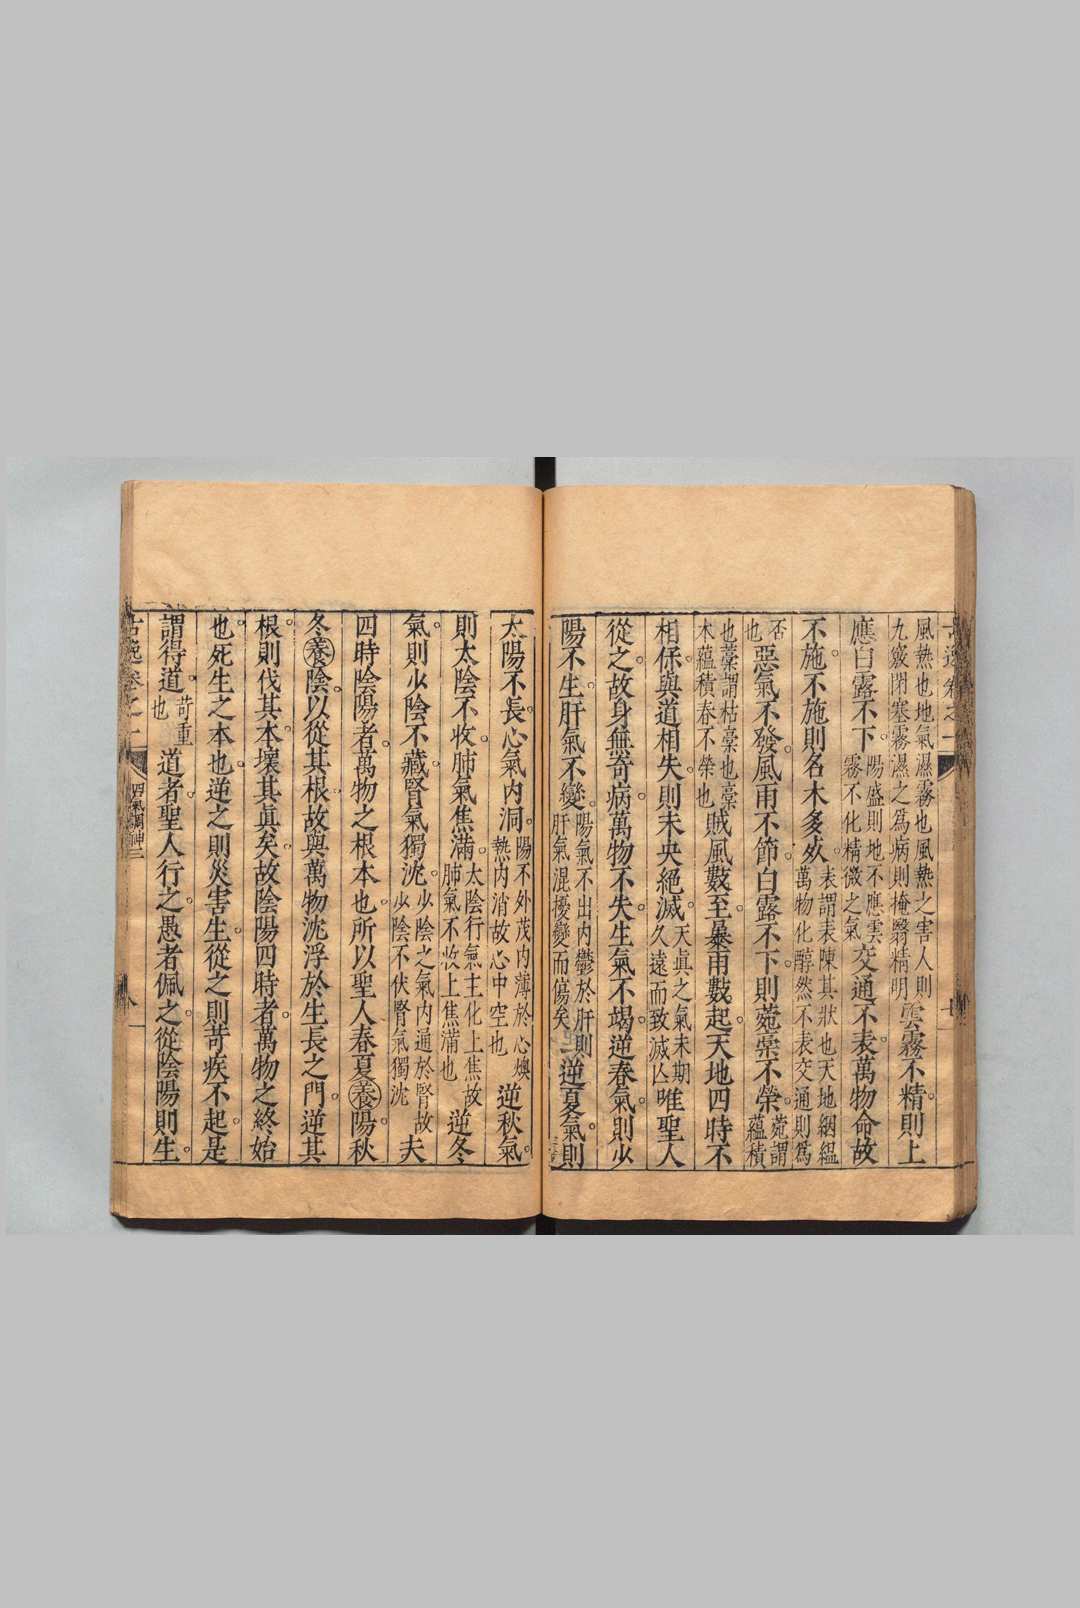 風熱也地氣濕霧也風熱之害人則
九竅閉塞霧濕之爲病則掩翳精明
雲霧不精則上
應白露不下
陽盛則地不應雲
霧不化精微之氣
交通不表萬物命故
不施不施則名木多死
表謂表陳其狀也天地絪縕
萬物化醇然不表交通則爲
否
也
惡氣不發風雨不節白露不下則菀槀不榮
菀謂
蘊積
也槀謂枯槀也槀
木蘊積春不榮也
賊風數至暴雨數起天地四時不
相保與道相失則未央絕滅
天眞之氣未期
久遠而致滅亾
唯聖人
從之故身無苛病萬物不失生氣不竭逆春氣則少
陽不生肝氣不變
陽氣不出內鬱於肝則
肝氣混擾變而傷矣
逆夏氣則
太陽不長心氣內洞
陽不外茂內薄於心燠
熱內消故心中空也
逆秋氣
則太陰不收肺氣焦滿
太陰行氣主化上焦故
肺氣不收上焦滿也
逆冬
氣則少陰不藏腎氣獨沈
少陰之氣內通於腎故
少陰不伏腎氣獨沈
夫
四時陰陽者萬物之根本也所以聖人春夏養陽秋
冬養陰以從其根故與萬物沈浮於生長之門逆其
根則伐其本壞其眞矣故陰陽四時者萬物之終始
也死生之本也逆之則災害生從之則苛疾不起是
謂得道
苛重
也
道者聖人行之愚者佩之從陰陽則生
古逸卷之一
四氣調神二